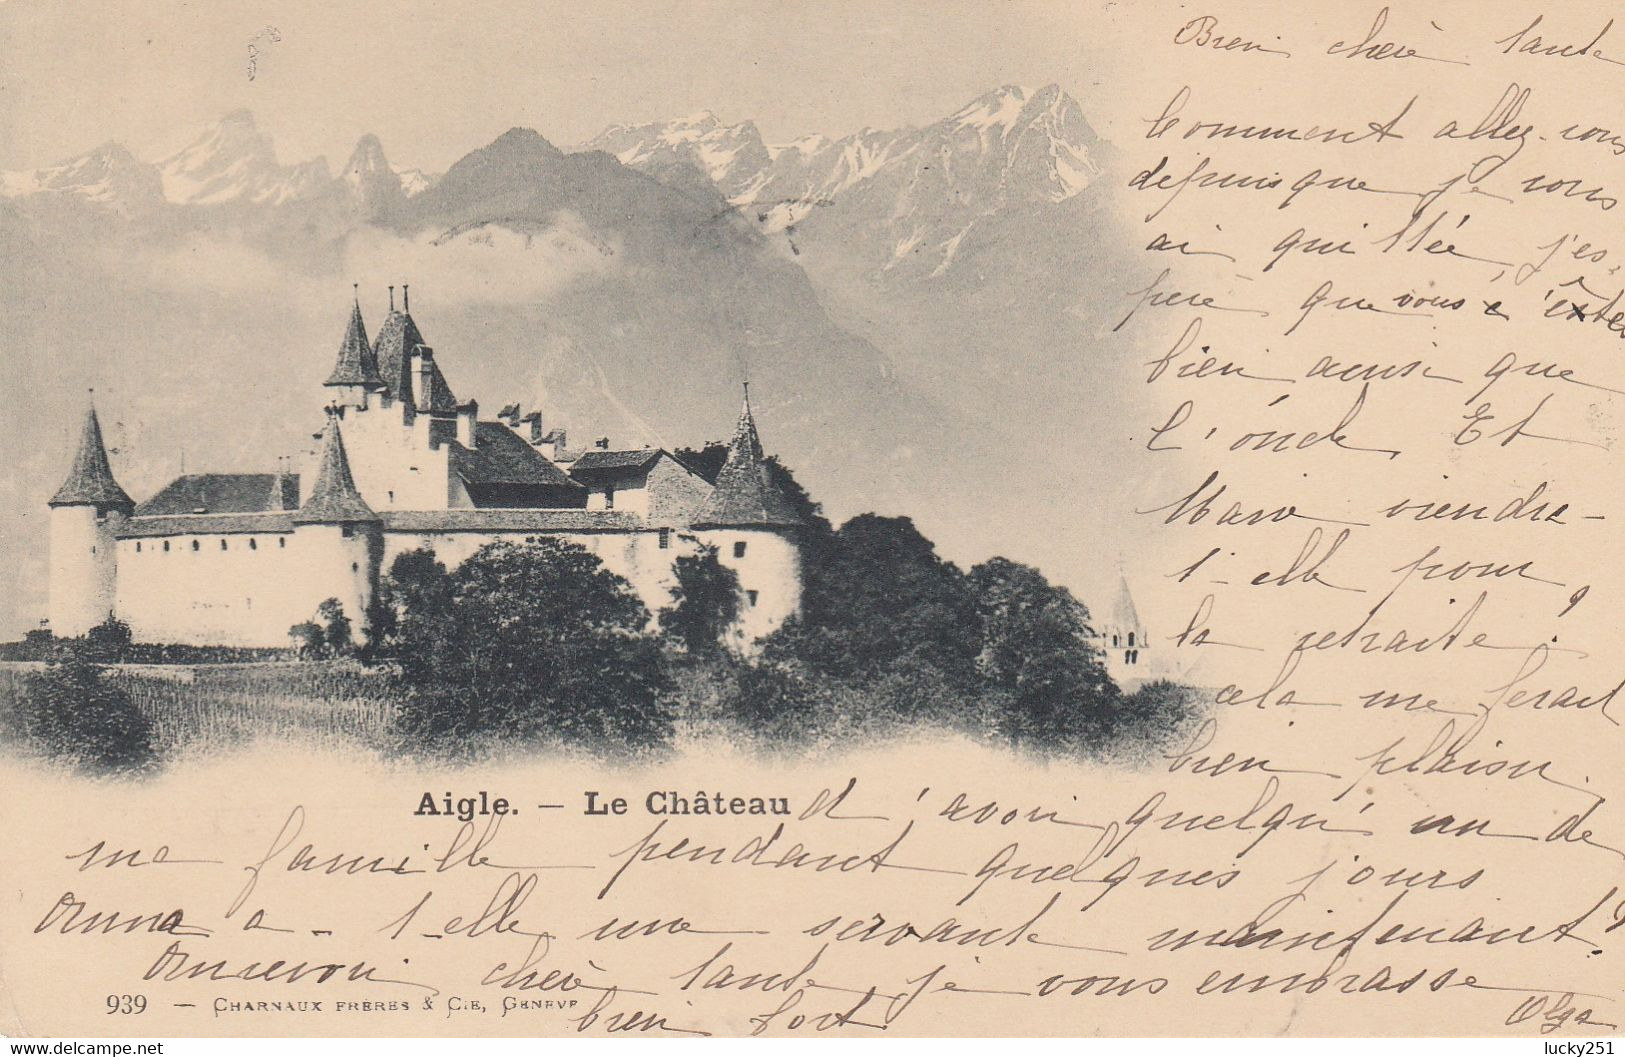 Bien chère tante
Comment allez-vous
depuis que je vous
ai quittée, j'es-
père que vous êtes
bien ainsi que
l'oncle. Et
Marie viendra-
t-elle pour
la retraite?
cela me ferait
bien plaisir
Aigle. — Le Château
d'avoir quelqu'un de
ma famille pendant quelques jours
Anna a-t-elle une servante maintenant?
Aurevoir chère tante je vous embrasse
939 — CHARNAUX FRÈRES & CIE, GENÈVE
bien fort
Olga
delcampe.net
lucky251